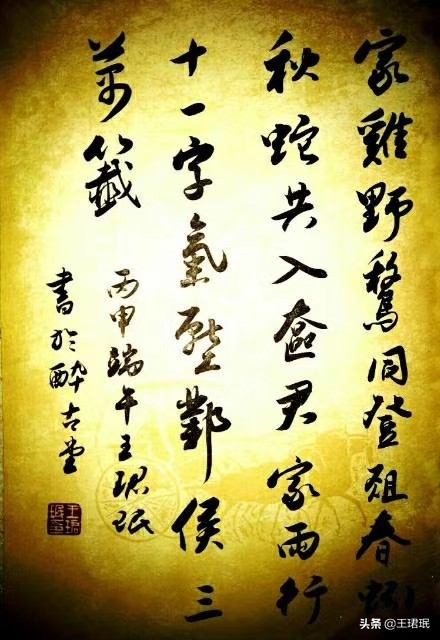 家雞野鶩同登俎春蚓
秋蛇共入奩君家兩行
十一字氣壓鄴侯三
萬籤
丙申端午王珺珉
書於醉古堂
头条 @王珺珉